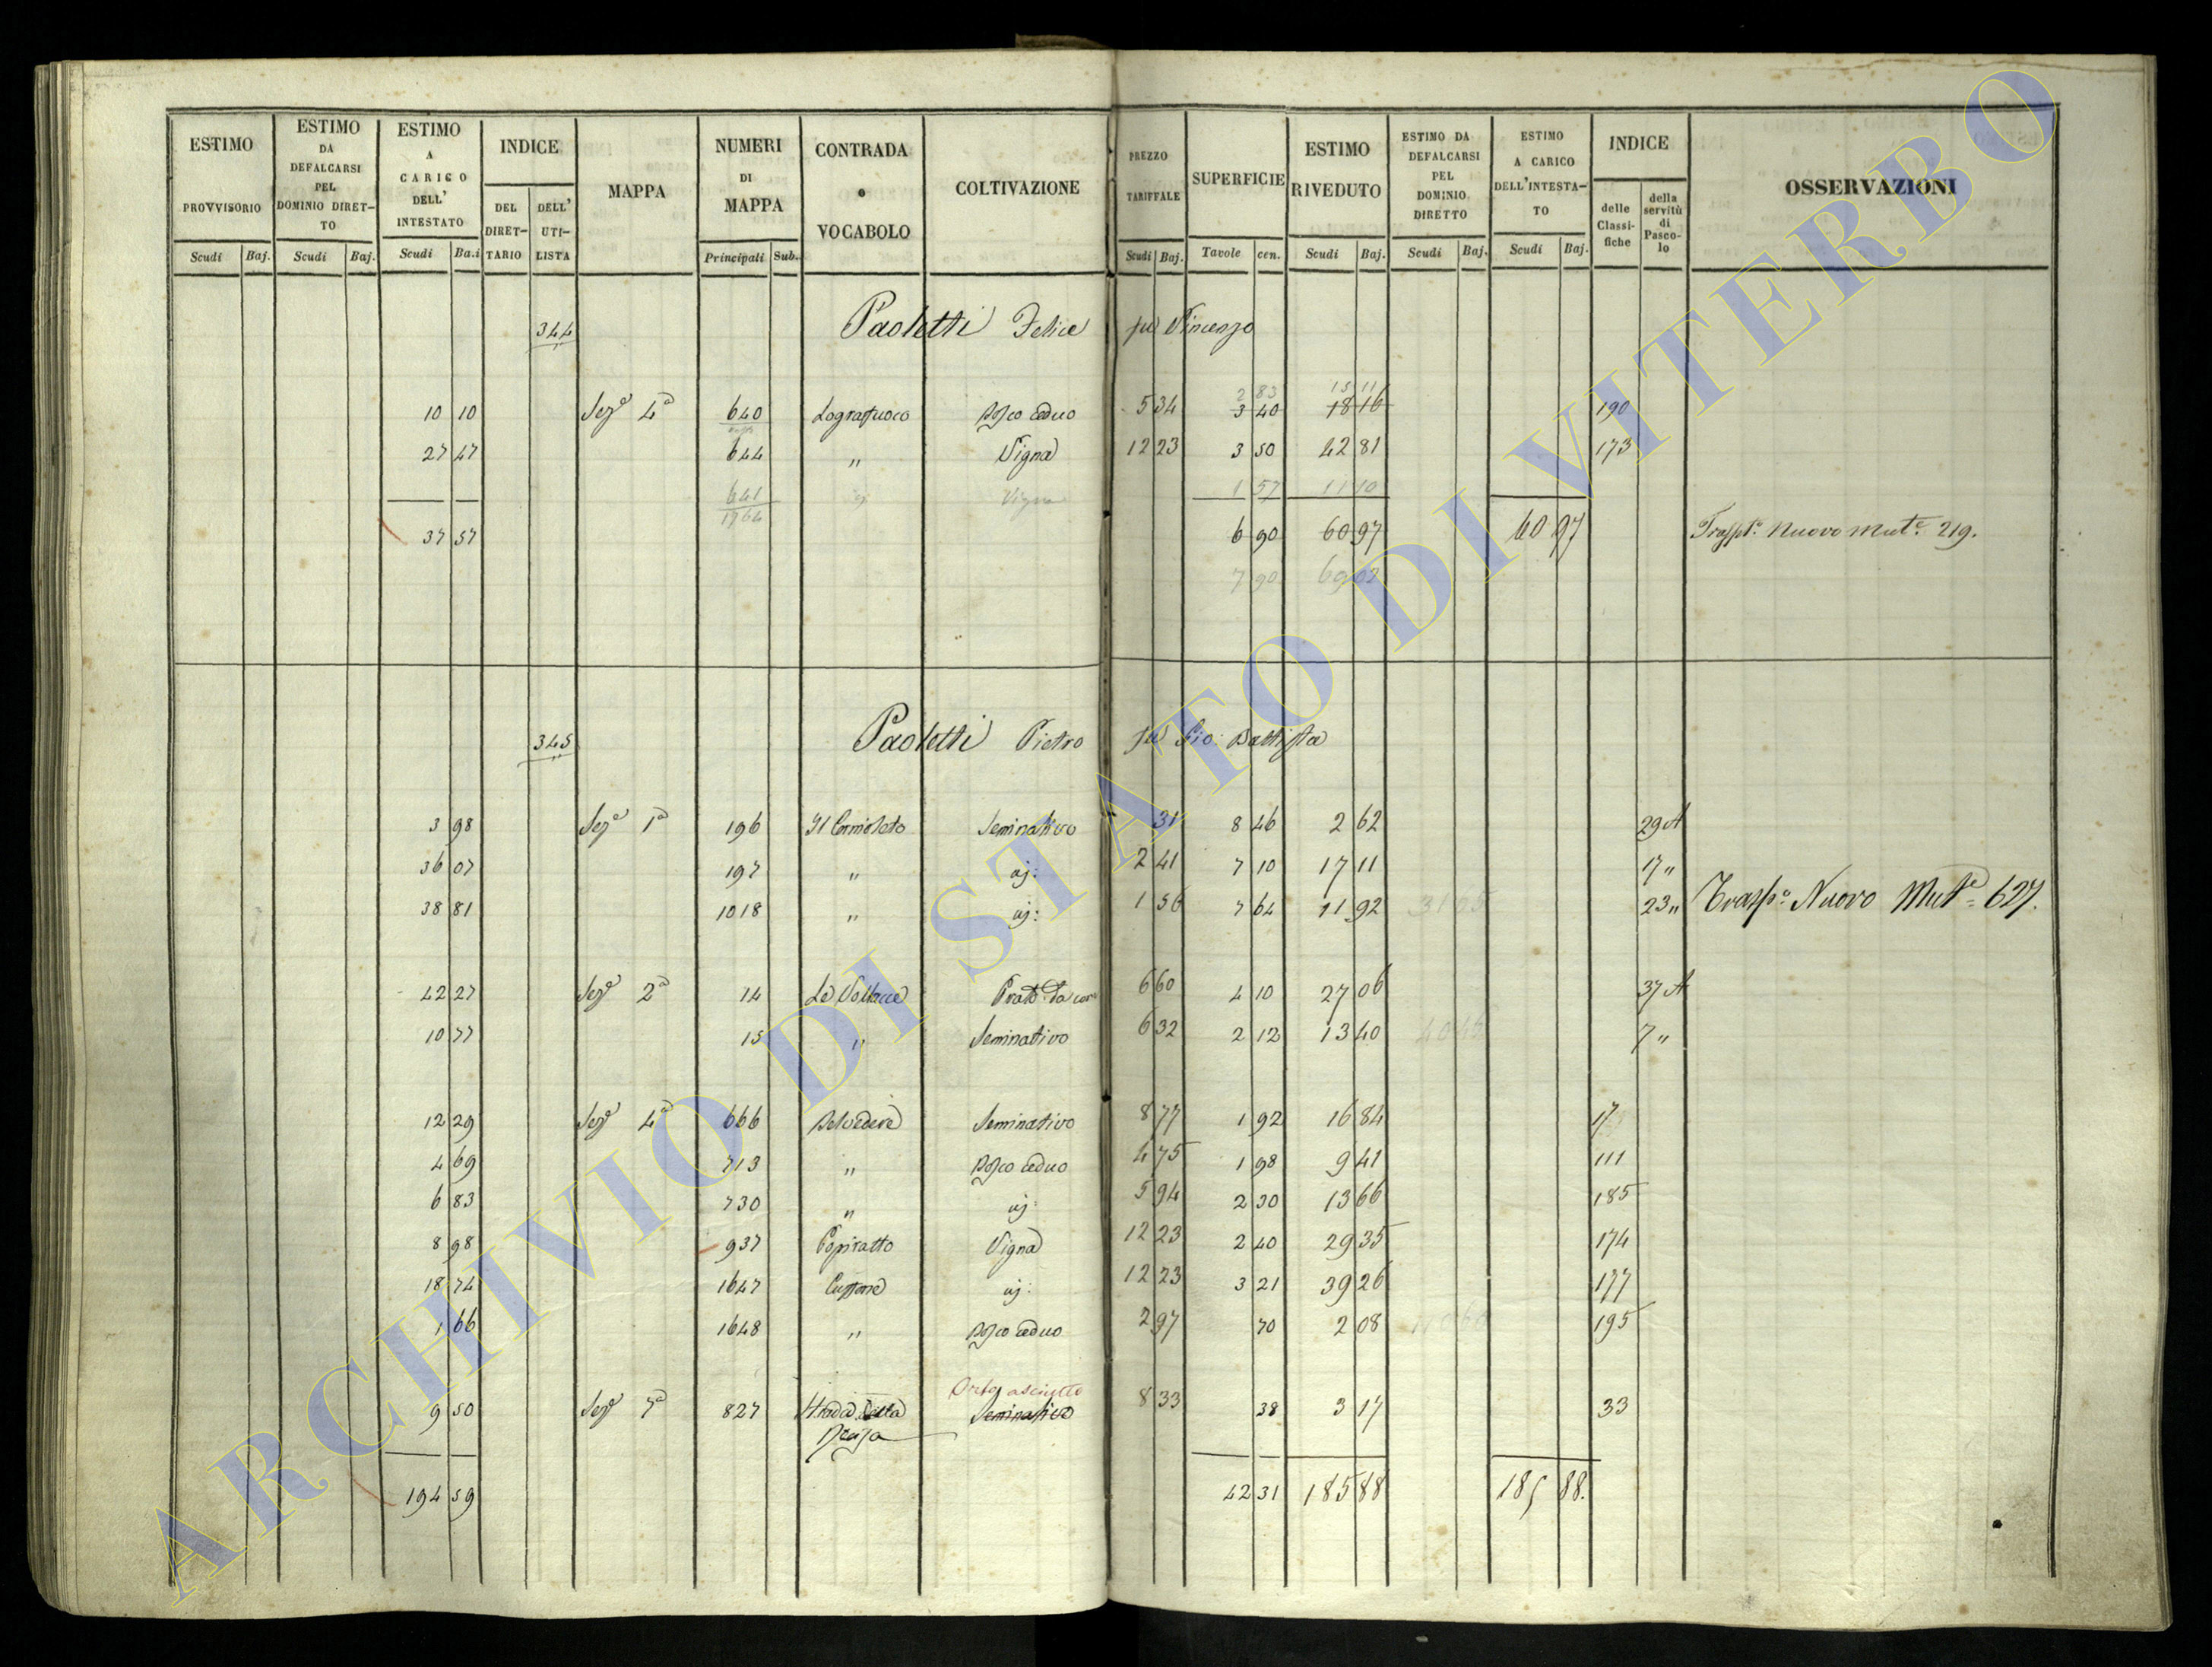 ESTIMO PROVVISORIO Scudi Baj.
ESTIMO DA DEFALCARSI PEL DOMINIO DIRET-TO Scudi Baj.
ESTIMO A CARICO DELL' INTESTATO Scudi Ba.i
INDICE DEL DIRET-TARIO DELL' UTI-LISTA
MAPPA
NUMERI DI MAPPA Principali Sub.
CONTRADA o VOCABOLO
COLTIVAZIONE
PREZZO TARIFFALE Scudi Baj.
SUPERFICIE Tavole cen.
ESTIMO RIVEDUTO Scudi Baj.
ESTIMO DA DEFALCARSI PEL DOMINIO DIRETTO Scudi Baj.
ESTIMO A CARICO DELL'INTESTA-TO Scudi Baj.
INDICE delle Classi-fiche della servitù di Pasco-lo
OSSERVAZIONI
344 Paoletti Felice fu Vincenzo
2 83 15 11
10 10 Sez.e 4a 640 Bosco ceduo 5 34 3 40 18 16 190
27 47 644 " Vigna 12 23 3 50 42 81 173
641 1764 " Vigna 1 57 11 10
37 57 6 90 60 97 60 97 Trasp.o Nuovo Mut.e 219.
7 90 69 02
345 Paoletti Pietro fu Gio: Battista
3 98 Sez.e 1a 196 Il Cornioleto Seminativo 31 8 46 2 62 29 A
36 07 197 " id: 2 41 7 10 17 11 17 "
38 81 1018 " id: 1 56 7 64 11 92 23 " Trasp.o Nuovo Mut.e 627.
42 27 Sez.e 2a 14 Prato 6 60 4 10 27 06 37 A
10 77 15 " Seminativo 6 32 2 12 13 40 7 "
12 29 Sez.e 4a 666 Belvedere Seminativo 8 77 1 92 16 84 17
4 69 713 " Bosco ceduo 4 75 1 98 9 41 111
6 83 730 " id: 5 94 2 30 13 66 185
8 98 937 Popiratto Vigna 12 23 2 40 29 35 174
18 74 1647 id: 12 23 3 21 39 26 177
1 66 1648 " Bosco ceduo 2 97 70 2 08 195
Orto asciutto
9 50 Sez.e 7a 827 Strada della Seminativo 8 33 38 3 17 33
194 59 42 31 185 88 185 88.
ARCHIVIO DI STATO DI VITERBO